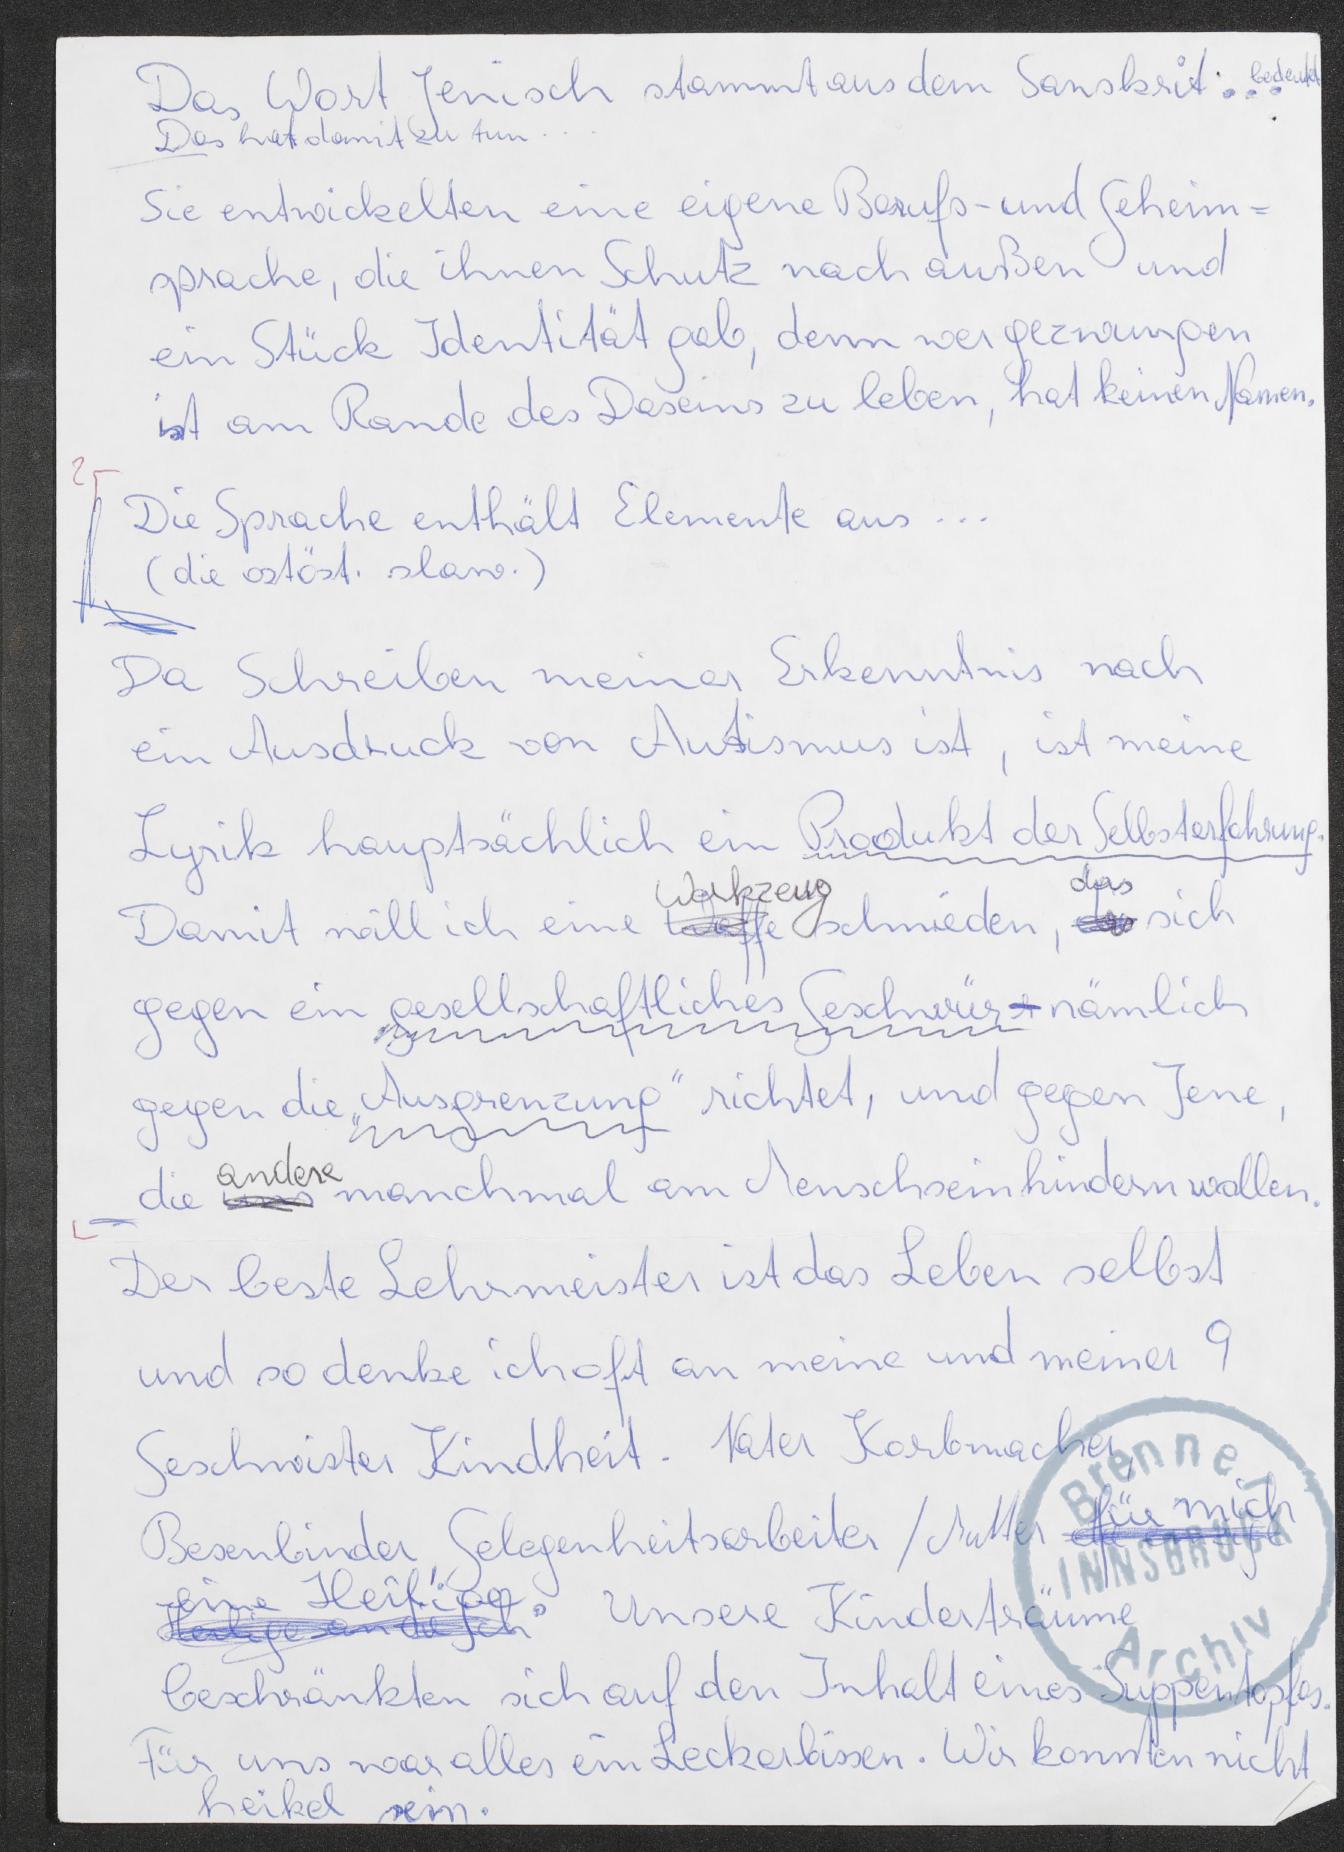 Das Wort Jenisch stammt aus dem Sanskrit: ... bedeutet
Das hat damit zu tun ....
Sie entwickelten eine eigene Berufs- und Geheim=
sprache, die ihnen Schutz nach außen und
ein Stück Identität gab, denn wer gezwungen
ist am Rande des Daseins zu leben, hat keinen Namen.
Die Sprache enthält Elemente aus ...
(die ostöst. slaw.)
Da Schreiben meiner Erkenntnis nach
ein Ausdruck von Autismus ist, ist meine
Lyrik hauptsächlich ein Produkt der Selbsterfahrung.
Werkzeug das
Damit will ich eine Waffe schmieden, sich
gegen ein gesellschaftliches Geschwür nämlich
gegen die „Ausgrenzung" richtet, und gegen Jene,
andere
die uns manchmal am Menschsein hindern wollen.
Der beste Lehrmeister ist das Leben selbst
und so denke ich oft an meine und meiner 9
Geschwister Kindheit. Vater Korbmacher,
Besenbinder, Gelegenheitsarbeiter / Mutter für mich
eine Heilige. Unsere Kinderträume
beschränkten sich auf den Inhalt eines Suppentopfes.
Für uns war alles ein Leckerbissen. Wir konnten nicht
heikel sein.
Brenner
INNSBRUCK
Archiv